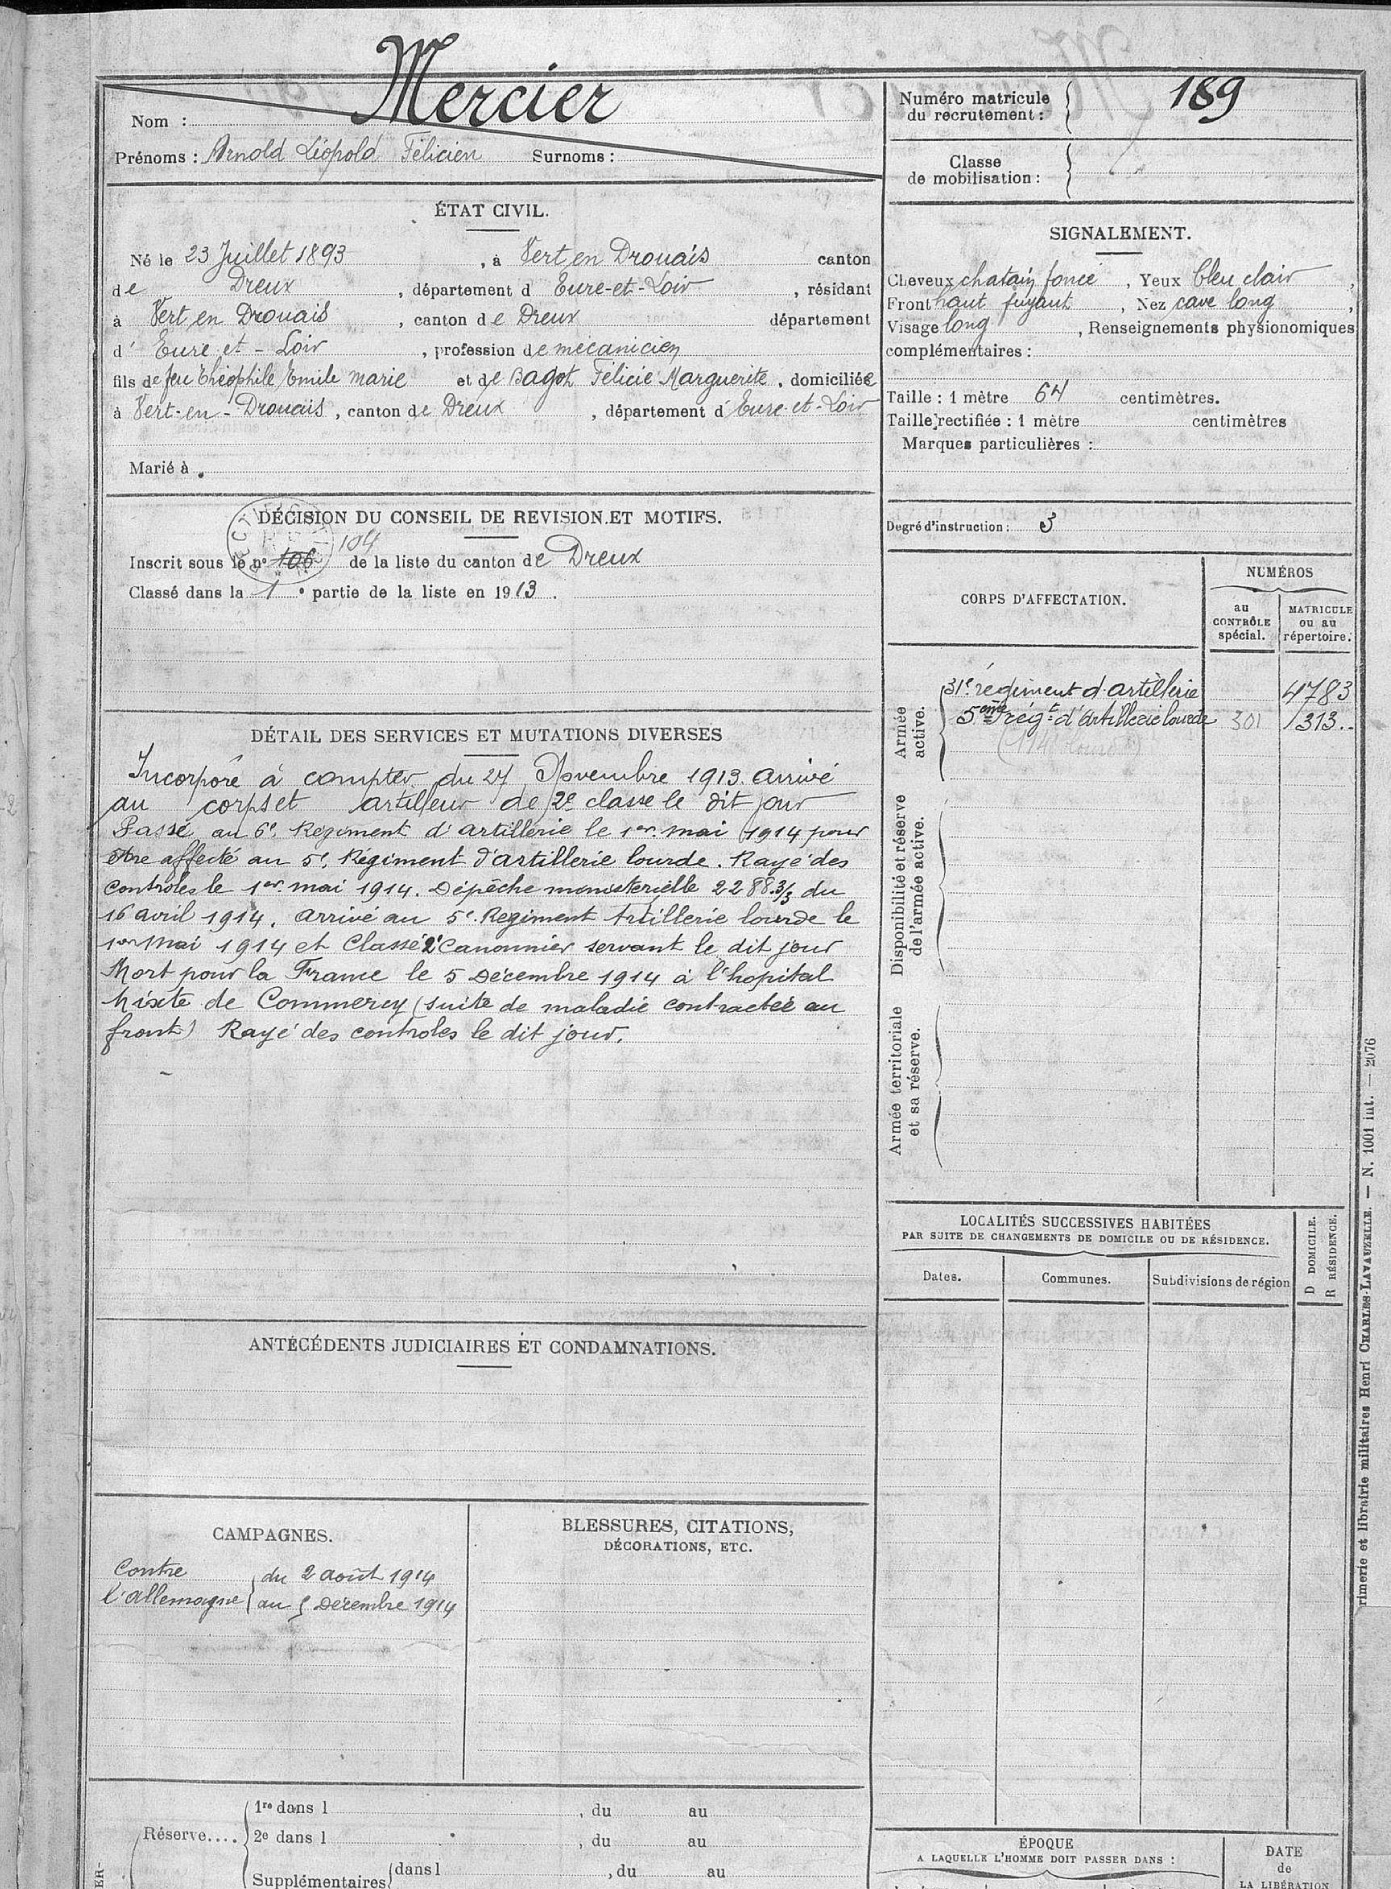 Mercier
Nom :
Prénoms : Arnold Léopold Félicien Surnoms :
Numéro matricule du recrutement : 189
Classe de mobilisation :
ÉTAT CIVIL.
Né le 23 Juillet 1893, à Vert en Drouais canton
de Dreux, département d Eure-et-Loir, résidant
à Vert en Drouais, canton de Dreux département
d' Eure et-Loir, profession de mécanicien
fils de feu Théophile Emile marie et de Bagot Félicie Marguerite, domiciliée
à Vert-en-Drouais, canton de Dreux, département d'Eure-et-Loir
Marié à
SIGNALEMENT.
Cheveux chatain foncé, Yeux bleu clair,
Front haut fuyant, Nez cave long,
Visage long, Renseignements physionomiques
complémentaires :
Taille : 1 mètre 64 centimètres.
Taille rectifiée : 1 mètre centimètres
Marques particulières :
Degré d'instruction : 3
DÉCISION DU CONSEIL DE REVISION ET MOTIFS.
104
Inscrit sous le n° 106 de la liste du canton de Dreux
Classé dans la 1e partie de la liste en 1913.
CORPS D'AFFECTATION.
NUMÉROS
au CONTRÔLE spécial.
MATRICULE ou au répertoire.
Armée active.
31e régiment d'artillerie 4783
5ème régt d'artillerie lourde 301 1313..
Disponibilité et réserve de l'armée active.
Armée territoriale et sa réserve.
DÉTAIL DES SERVICES ET MUTATIONS DIVERSES
Incorporé à compter du 27 Novembre 1913. arrivé
au corps et artilleur de 2e classe le dit jour
Passé au 6e Régiment d'artillerie le 1er mai 1914 pour
être affecté au 5e Régiment d'artillerie lourde. Rayé des
controles le 1er mai 1914. Dépêche ministerielle 2288.3/3 du
16 avril 1914. arrivé au 5e Régiment Artillerie lourde le
1er Mai 1914 et Classé 2e Canonnier servant le dit jour
Mort pour la France le 5 Décembre 1914 à l'hopital
Mixte de Commercy (suite de maladie contractée au
front) Rayé des controles le dit jour.
LOCALITÉS SUCCESSIVES HABITÉES
PAR SUITE DE CHANGEMENTS DE DOMICILE OU DE RÉSIDENCE.
Dates. Communes. Subdivisions de région
D DOMICILE.
R RÉSIDENCE.
ANTÉCÉDENTS JUDICIAIRES ET CONDAMNATIONS.
CAMPAGNES.
Contre du 2 août 1914
l'allemagne au 5 Décembre 1914
BLESSURES, CITATIONS,
DÉCORATIONS, ETC.
Réserve....
1re dans l , du au
2e dans l , du au
Supplémentaires dans l , du au
ÉPOQUE
A LAQUELLE L'HOMME DOIT PASSER DANS :
DATE
de
LA LIBÉRATION
rimerie et librairie militaires Henri CHARLES-LAVAUZELLE. — N. 1001 int. — 2076